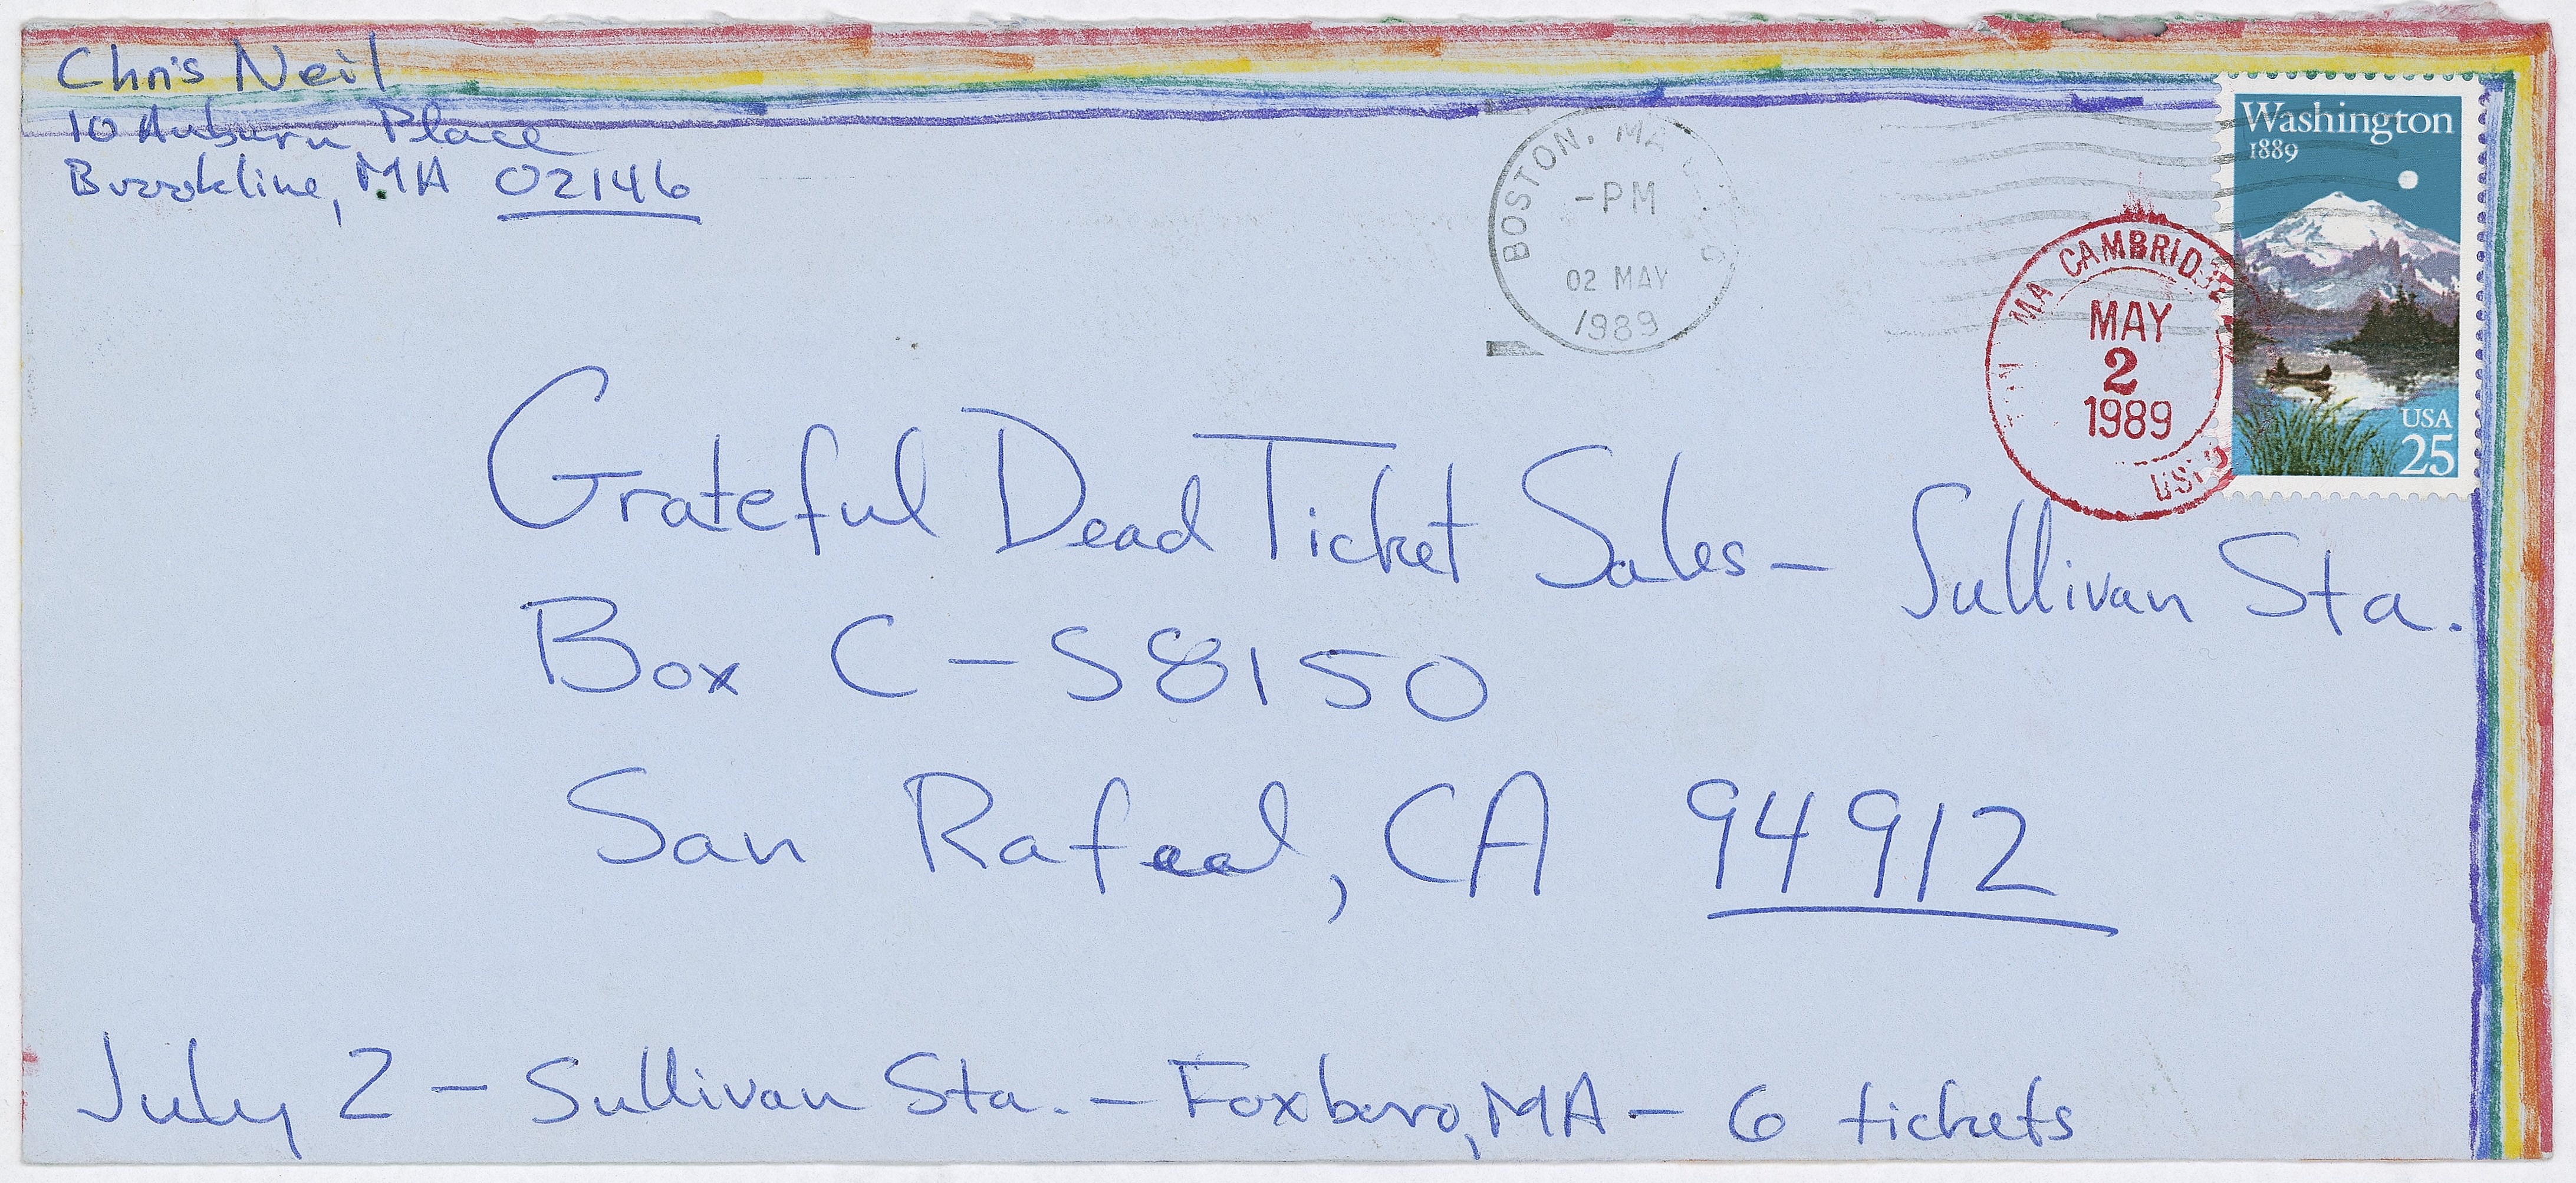 Chris Neil
10 Auburn Place
Brookline, MA 02146
BOSTON, MA
-PM
02 MAY
1989
Washington
1889
USA
25
MA CAMBRIDGE
MAY
2
1989
Grateful Dead Ticket Sales - Sullivan Sta.
Box C-58150
San Rafael, CA 94912
July 2 - Sullivan Sta. - Foxboro, MA - 6 tickets